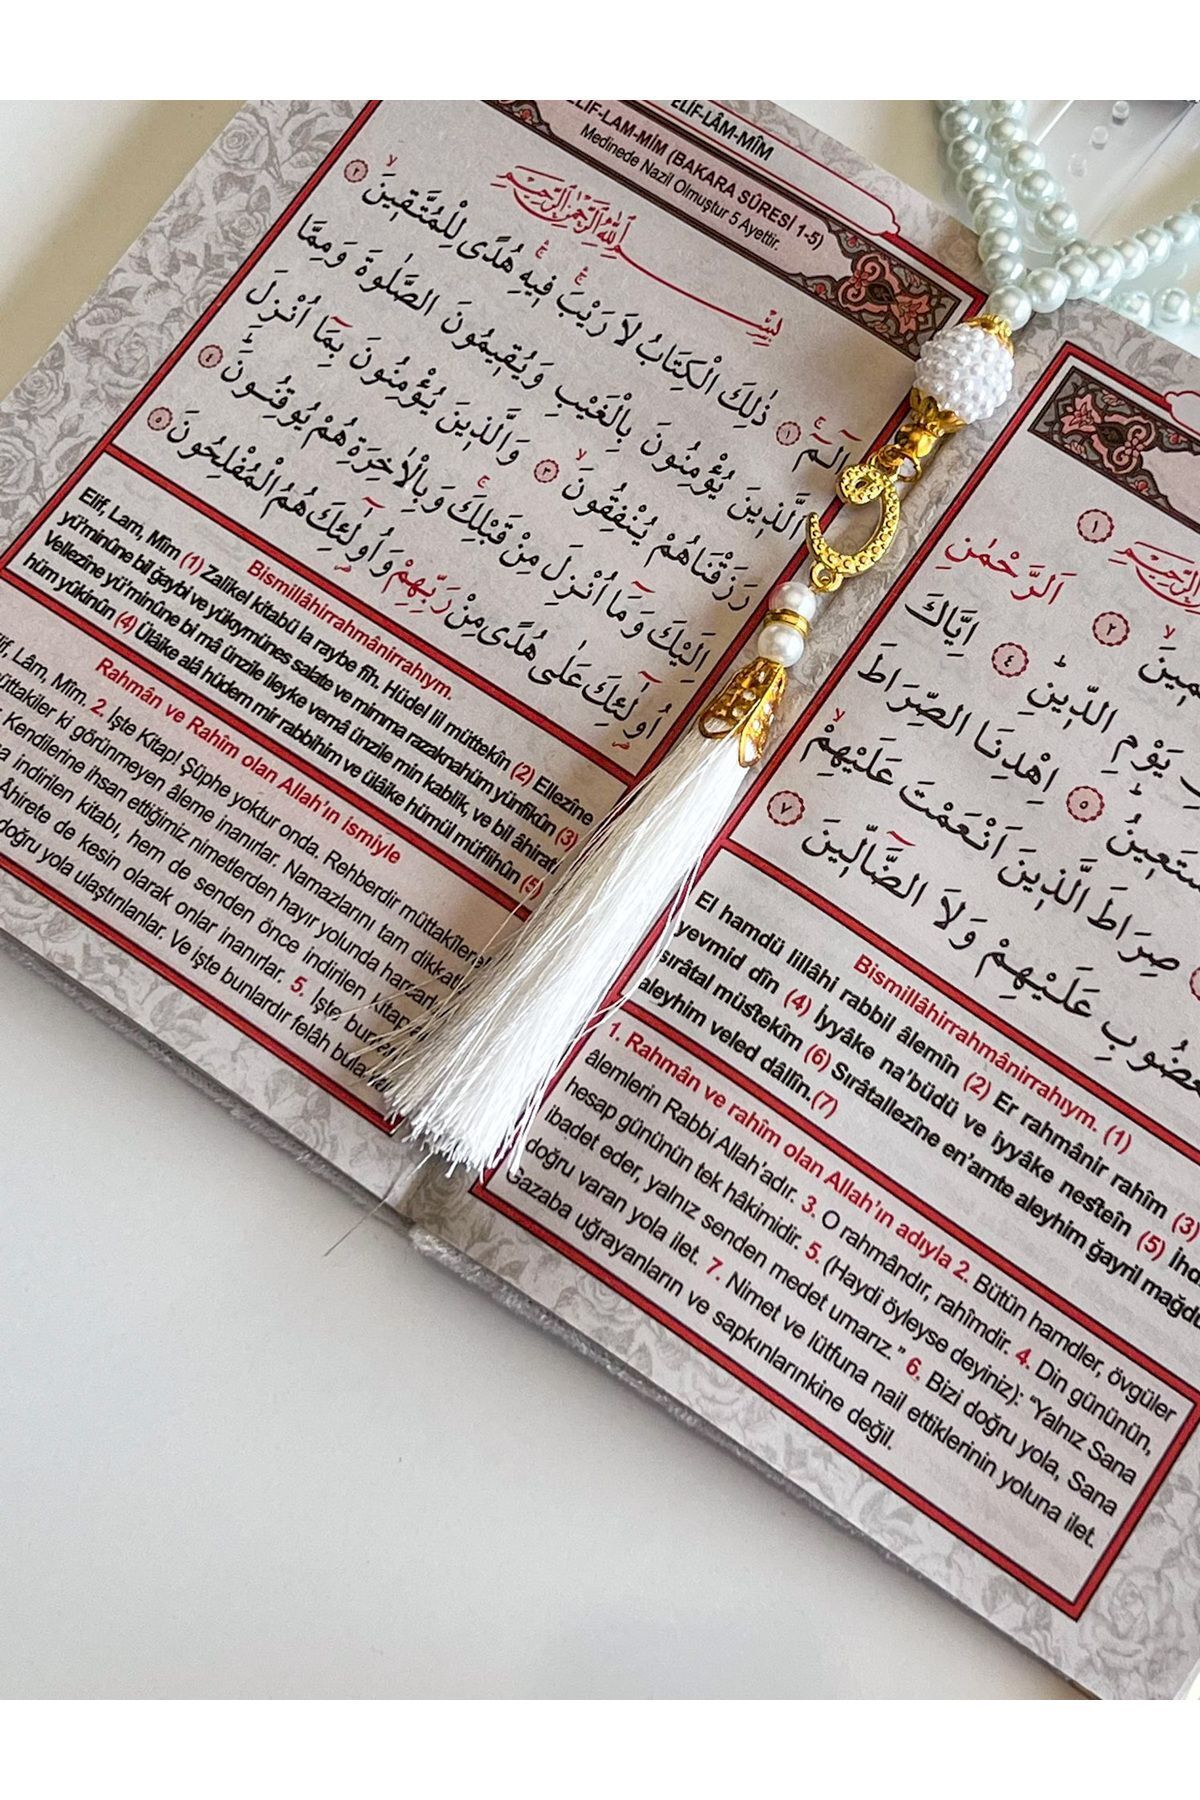 ELİF-LÂM-MÎM
ELİF-LAM-MİM (BAKARA SÛRESİ 1-5)
Medinede Nazil Olmuştur 5 Ayettir.
بِسْمِ اللّٰهِ الرَّحْمٰنِ الرَّحِيمِ
الٓمٓ ١ ذٰلِكَ الْكِتَابُ لَا رَيْبَ فِيهِ هُدًى لِلْمُتَّقِينَ ٢
الَّذِينَ يُؤْمِنُونَ بِالْغَيْبِ وَيُقِيمُونَ الصَّلٰوةَ وَمِمَّا
رَزَقْنَاهُمْ يُنْفِقُونَ ٣ وَالَّذِينَ يُؤْمِنُونَ بِمَٓا اُنْزِلَ
اِلَيْكَ وَمَٓا اُنْزِلَ مِنْ قَبْلِكَ وَبِالْاٰخِرَةِ هُمْ يُوقِنُونَ ٤
اُو۬لٰٓئِكَ عَلٰى هُدًى مِنْ رَبِّهِمْ وَاُو۬لٰٓئِكَ هُمُ الْمُفْلِحُونَ ٥
Bismillâhirrahmânirrahıym.
Elif, Lam, Mîm (1) Zalikel kitabü la raybe fîh. Hüdel lil müttekîn (2) Ellezîne
yü'minûne bil ğaybi ve yükymûnes salate ve mimma razaknahüm yünfikûn (3)
Vellezîne yü'minûne bi mâ ünzile ileyke vemâ ünzile min kablik, ve bil âhirati
hüm yûkinûn (4) Ülâike alâ hüdem mir rabbihim ve ülâike hümül müflihûn (5)
Rahmân ve Rahîm olan Allah'ın ismiyle
Elif, Lâm, Mîm. 2. İşte Kitap! Şüphe yoktur onda. Rehberdir müttakîlere
müttakiler ki görünmeyen âleme inanırlar. Namazlarını tam dikkatle
Kendilerine ihsan ettiğimiz nimetlerden hayır yolunda harcarlar
indirilen kitabı, hem de senden önce indirilen kitapları
Âhirete de kesin olarak onlar inanırlar. 5. İşte bunlar
doğru yola ulaştırılanlar. Ve işte bunlardır felâh bulanlar
١
اَلرَّحْمٰنِ ٢
يَوْمِ الدِّينِ ٤ اِيَّاكَ
٥ اِهْدِنَا الصِّرَاطَ
صِرَاطَ الَّذِينَ اَنْعَمْتَ عَلَيْهِمْ
عَلَيْهِمْ وَلَا الضَّٓالِّينَ ٧
Bismillâhirrahmânirrahıym. (1)
El hamdü lillâhi rabbil âlemîn (2) Er rahmânir rahîm (3)
yevmid dîn (4) İyyâke na'büdü ve iyyâke nesteîn (5)
sırâtal müstekîm (6) Sırâtallezîne en'amte aleyhim ğayril
aleyhim veled dâllîn.(7)
1. Rahmân ve rahîm olan Allah'ın adıyla 2. Bütün hamdler, övgüler
âlemlerin Rabbi Allah'adır. 3. O rahmândır, rahîmdir. 4. Din gününün,
hesap gününün tek hâkimidir. 5. (Haydi öyleyse deyiniz): "Yalnız Sana
ibadet eder, yalnız senden medet umarız." 6. Bizi doğru yola, Sana
doğru varan yola ilet. 7. Nimet ve lütfuna nail ettiklerinin yoluna ilet.
Gazaba uğrayanların ve sapkınlarınkine değil.